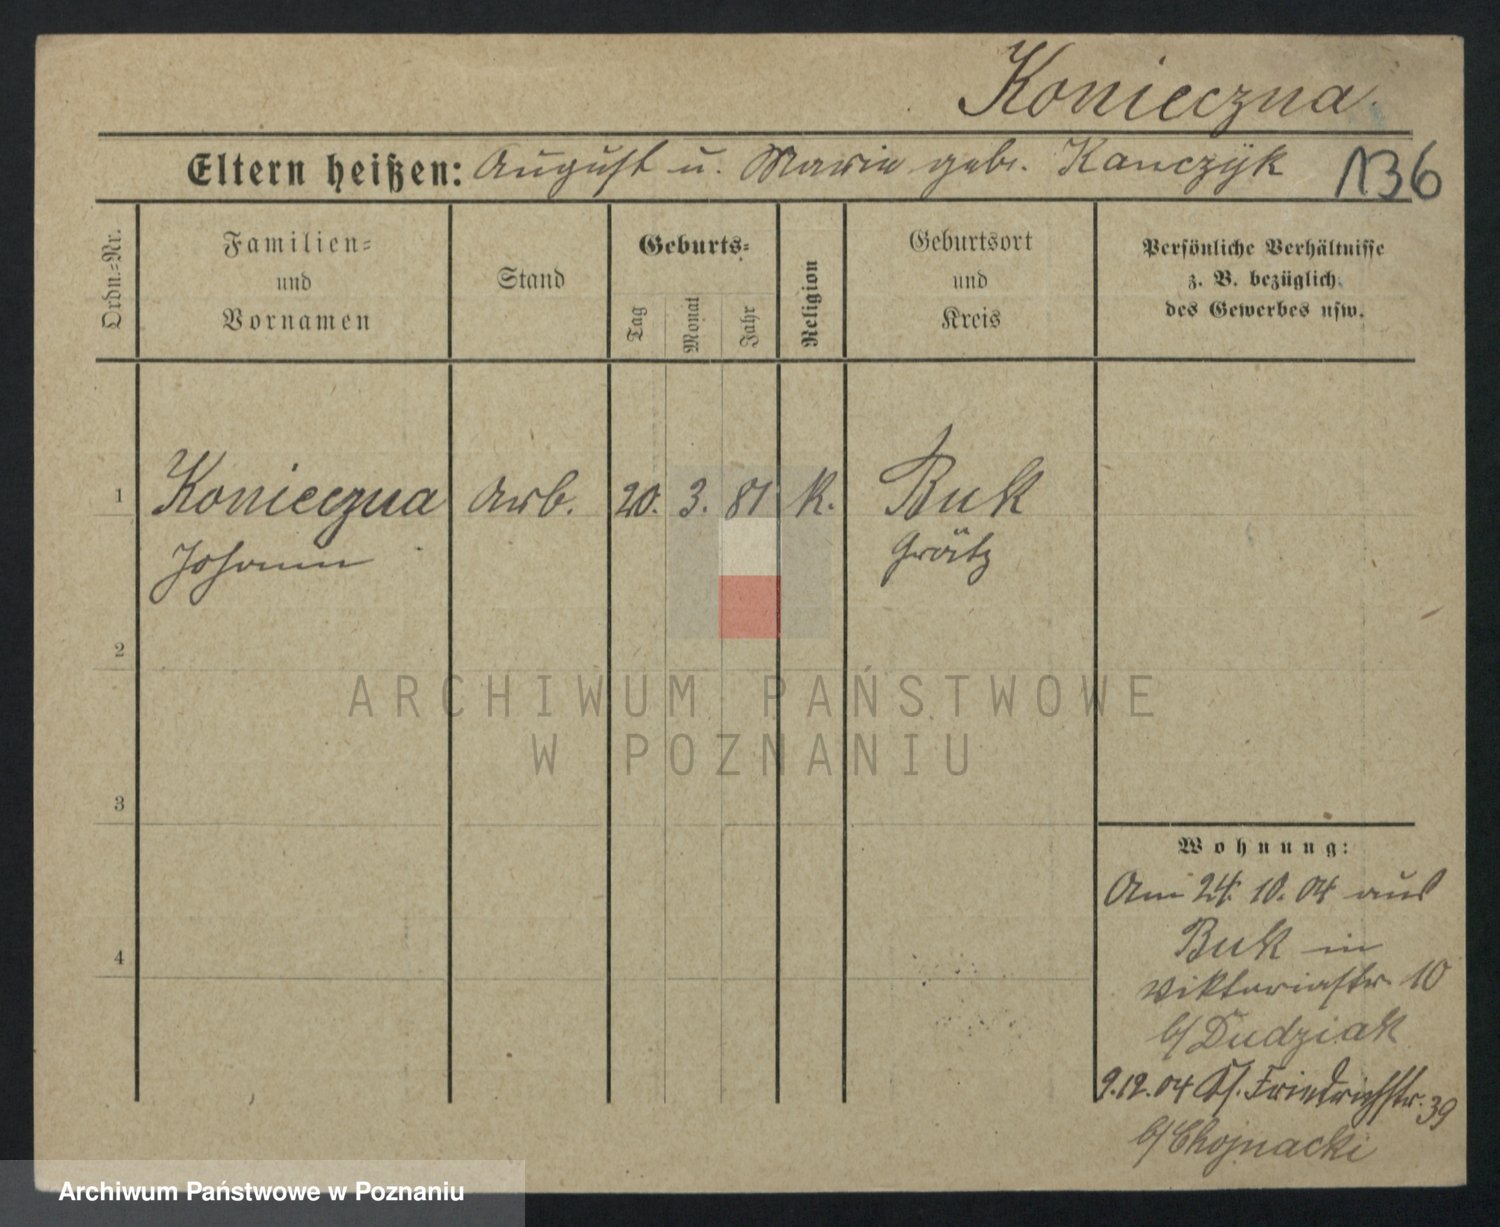 Konieczna.
Eltern heißen: August u. Marie geb. Kanczyk
136
Ordn.=Nr.
Familien=
und
Vornamen
Stand
Geburts=
Tag
Monat
Jahr
Religion
Geburtsort
und
Kreis
Persönliche Verhältnisse
z. B. bezüglich
des Gewerbes usw.
1 Konieczna Arb. 20. 3. 81 K. Buk
Johann Grätz
2
ARCHIWUM PAŃSTWOWE
W POZNANIU
3
Wohnung:
Am 24. 10. 04 aus
4
Buk in
Viktoriastr 10
b/Dudziak
9.12.04 Friedrichstr. 39
b/Chojnacki
Archiwum Państwowe w Poznaniu